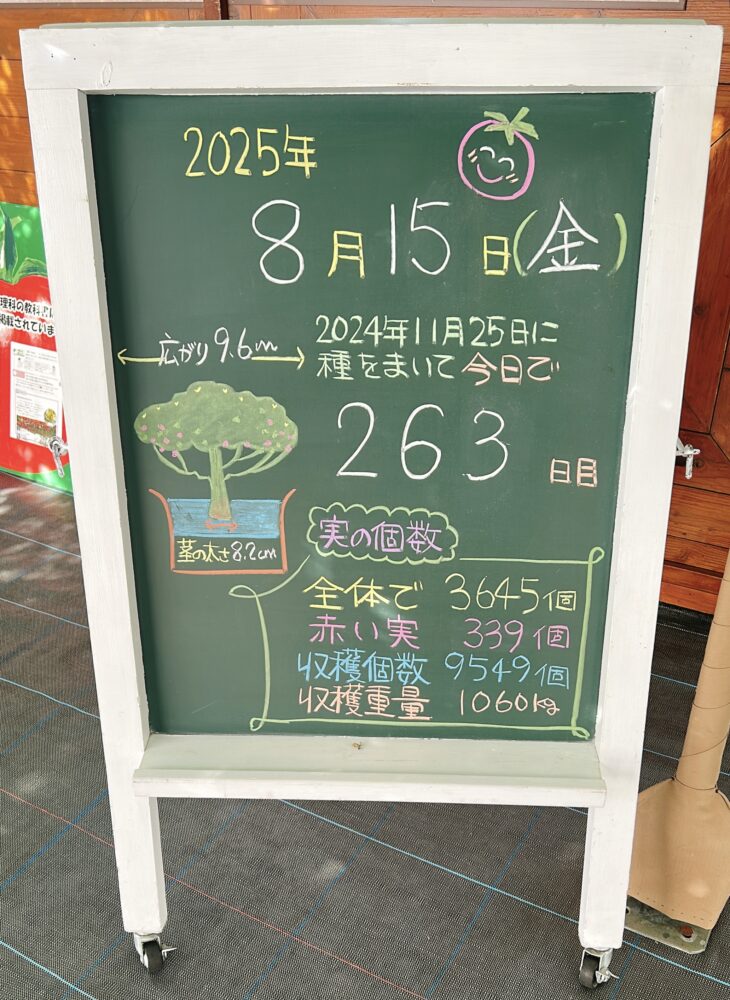 2025年
8月15日(金)
広がり9.6m
2024年11月25日に
種をまいて今日で
263日目
茎の太さ8.2cm
実の個数
全体で 3645個
赤い実 339個
収穫個数 9549個
収穫重量 1060kg
理科の教科書に
掲載されていま